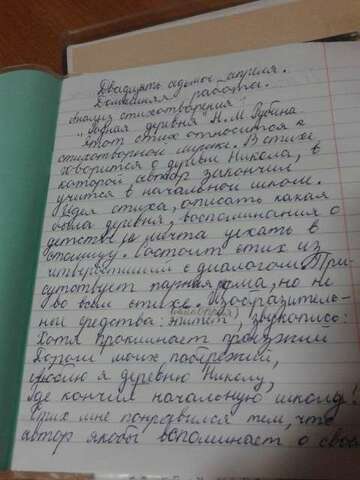 Двадцать седьмое апреля.
Домашняя работа.
Анализ стихотворения
"Родная деревня" Н.М Рубцова
Этот стих относится к
стихотворной лирике. В стихе
говорится о деревне Никола, в
которой автор закончил
учится в начальной школе.
Идея стиха, описать какая
была деревня, воспоминания о
детстве и мечта уехать в
столицу. Состоит стих из
четверостиший с диалогом. При-
сутствует парная рифма, но не
во всём стихе. Изобразитель-
ные средства: эпитет, звукопись:
Хотя проклинает проезжий
Дороги моих побережий,
Люблю я деревню Николу,
Где кончил начальную школу!
Стих мне понравился тем, что
автор якобы вспоминает о своё